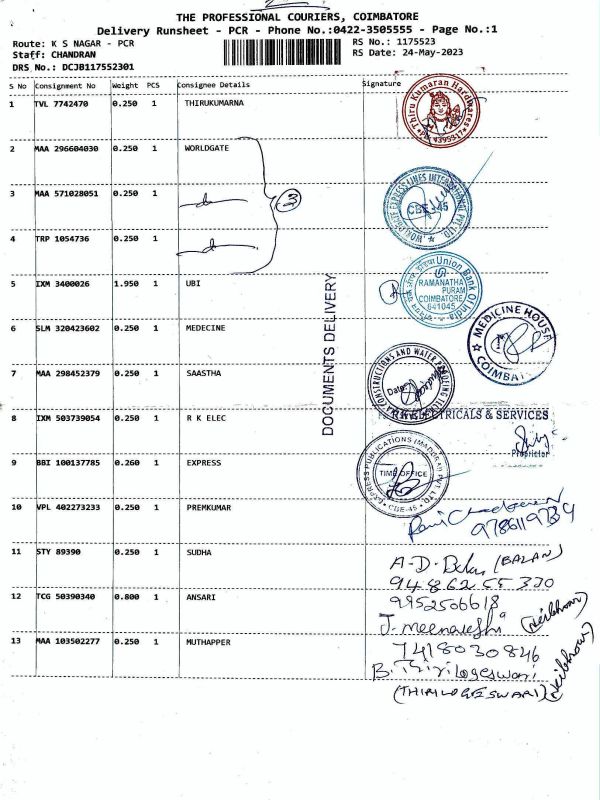 THE PROFESSIONAL COURIERS, COIMBATORE
Delivery Runsheet - PCR - Phone No.:0422-3505555 - Page No.:1
Route: K S NAGAR - PCR
RS No.: 1175523
Staff: CHANDRAN
RS Date: 24-May-2023
DRS No.: DCJB117552301
S No Consignment No Weight PCS Consignee Details Signature
1 TVL 7742470 0.250 1 THIRUKUMARNA
Thiru Kumaran Hardwares
2 MAA 296604030 0.250 1 WORLDGATE
3 MAA 571028051 0.250 1
WORLDGATE EXPRESS LINES INTERNATIONAL PVT. LTD.
CBE-45
4 TRP 1054736 0.250 1
5 IXM 3400026 1.950 1 UBI
Union Bank Of India
RAMANATHA
PURAM
COIMBATORE
641045
6 SLM 320423602 0.250 1 MEDECINE
MEDICINE HOUSE
DOCUMENTS DELIVERY
7 MAA 298452379 0.250 1 SAASTHA
CONSTRUCTIONS AND WATER
Date
8 IXM 503739054 0.250 1 R K ELEC
R K ELECTRICALS & SERVICES
Proprietor
9 BBI 100137785 0.260 1 EXPRESS
EXPRESS PUBLICATIONS (MADURAI) PVT. LTD.
TIME OFFICE
CBE-45
10 VPL 402273233 0.250 1 PREMKUMAR
11 STY 89390 0.250 1 SUDHA
(BALAN)
94862 55 330
12 TCG 50390340 0.800 1 ANSARI
9952506618
J. meenakshi (Neibhour)
13 MAA 103502277 0.250 1 MUTHAPPER
7418030846
B. Thirilogeswari
(THIRILOGESWARI) (Neibhour)